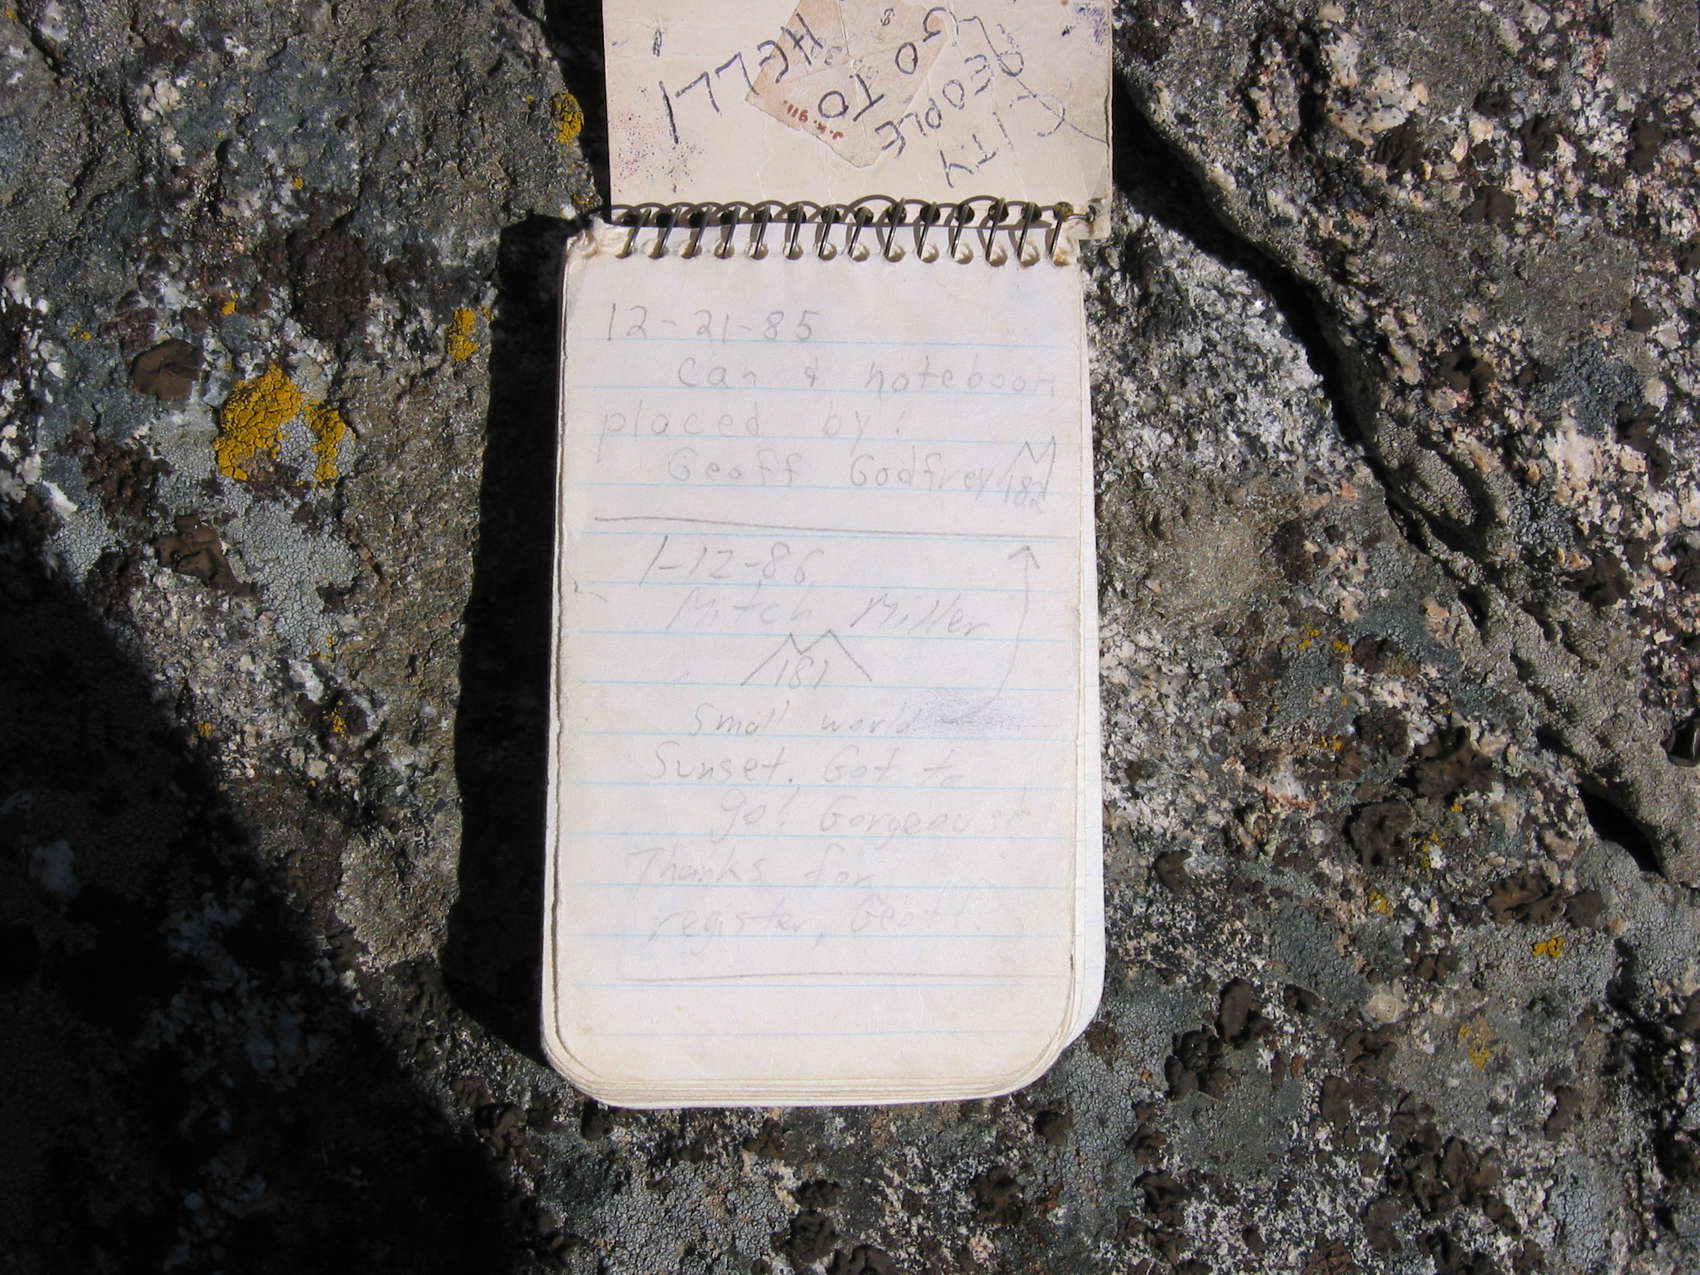 CITY
PEOPLE
GO
TO
HELL!
12-21-85
Can & notebook
placed by:
Geoff Godfrey 182
1-12-86
Mitch Miller
181
Small world
Sunset. Got to
go! Gorgeous!
Thanks for
register, Geoff.